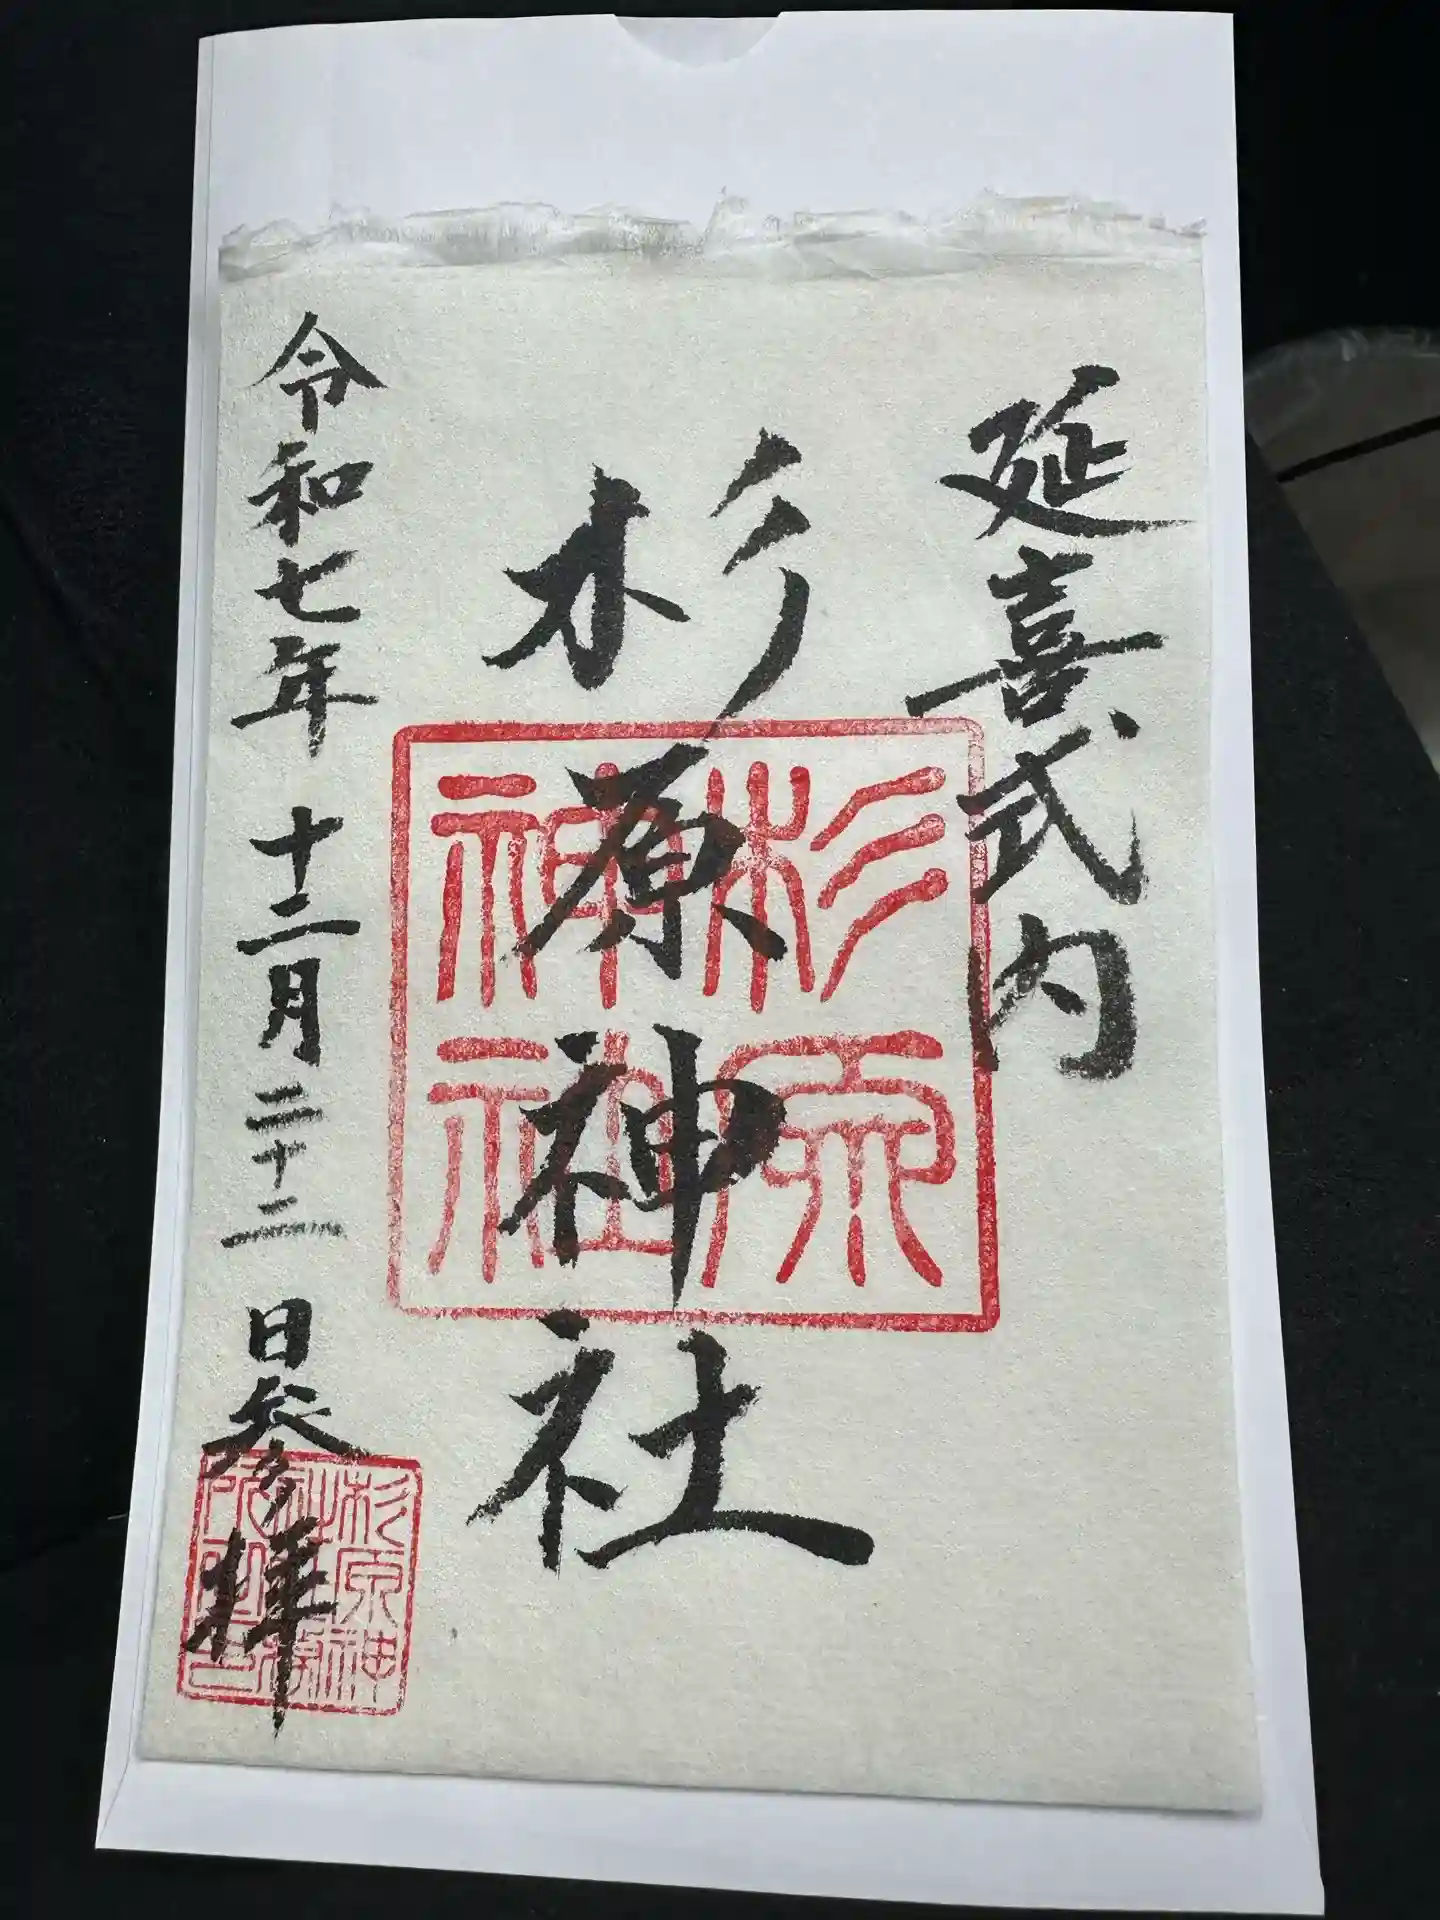 延喜式内
杉原神社
令和七年 十二月 二十二 日参拝
杉原
神社
杉原神